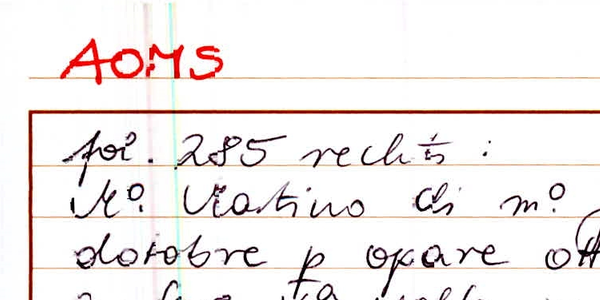 AOMS
foi. 285 rechts:
Mº. Martino di mº
dotobre p opare ott